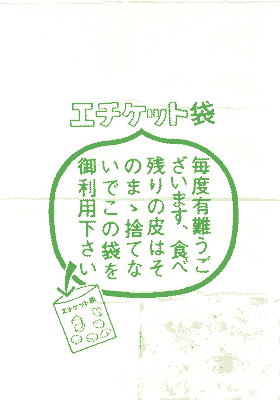 エチケット袋
毎度有難うご
ざいます、食べ
残りの皮はそ
のまゝ捨てな
いでこの袋を
御利用下さい
エチケット袋